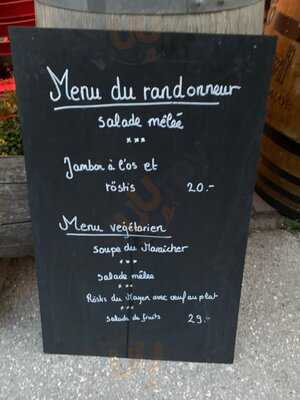 Menu du randonneur
salade mêlée
***
Jambon à l'os et
röstis 20.-
Menu végétarien
soupe du Maraîcher
***
salade mêlée
***
Röstis du Mayen avec œuf au plat
***
salade de fruits 29.-